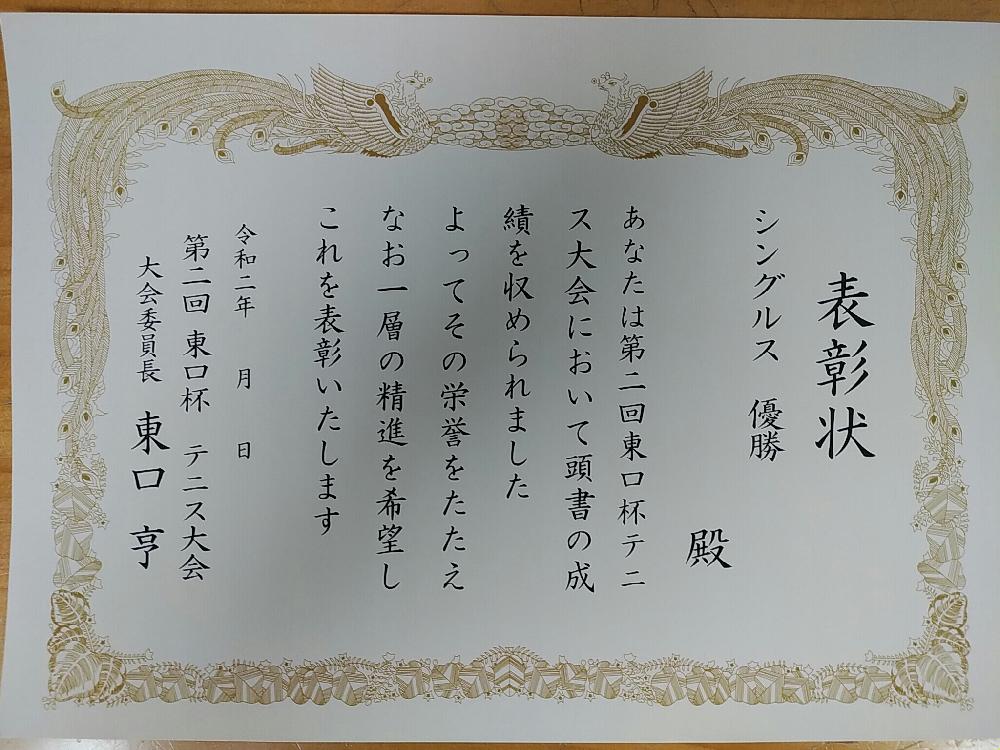 表彰状
シングルス 優勝
殿
あなたは第二回東口杯テニ
ス大会において頭書の成
績を収められました
よってその栄誉をたたえ
なお一層の精進を希望し
これを表彰いたします
令和二年 月 日
第二回 東口杯 テニス大会
大会委員長 東口 亨